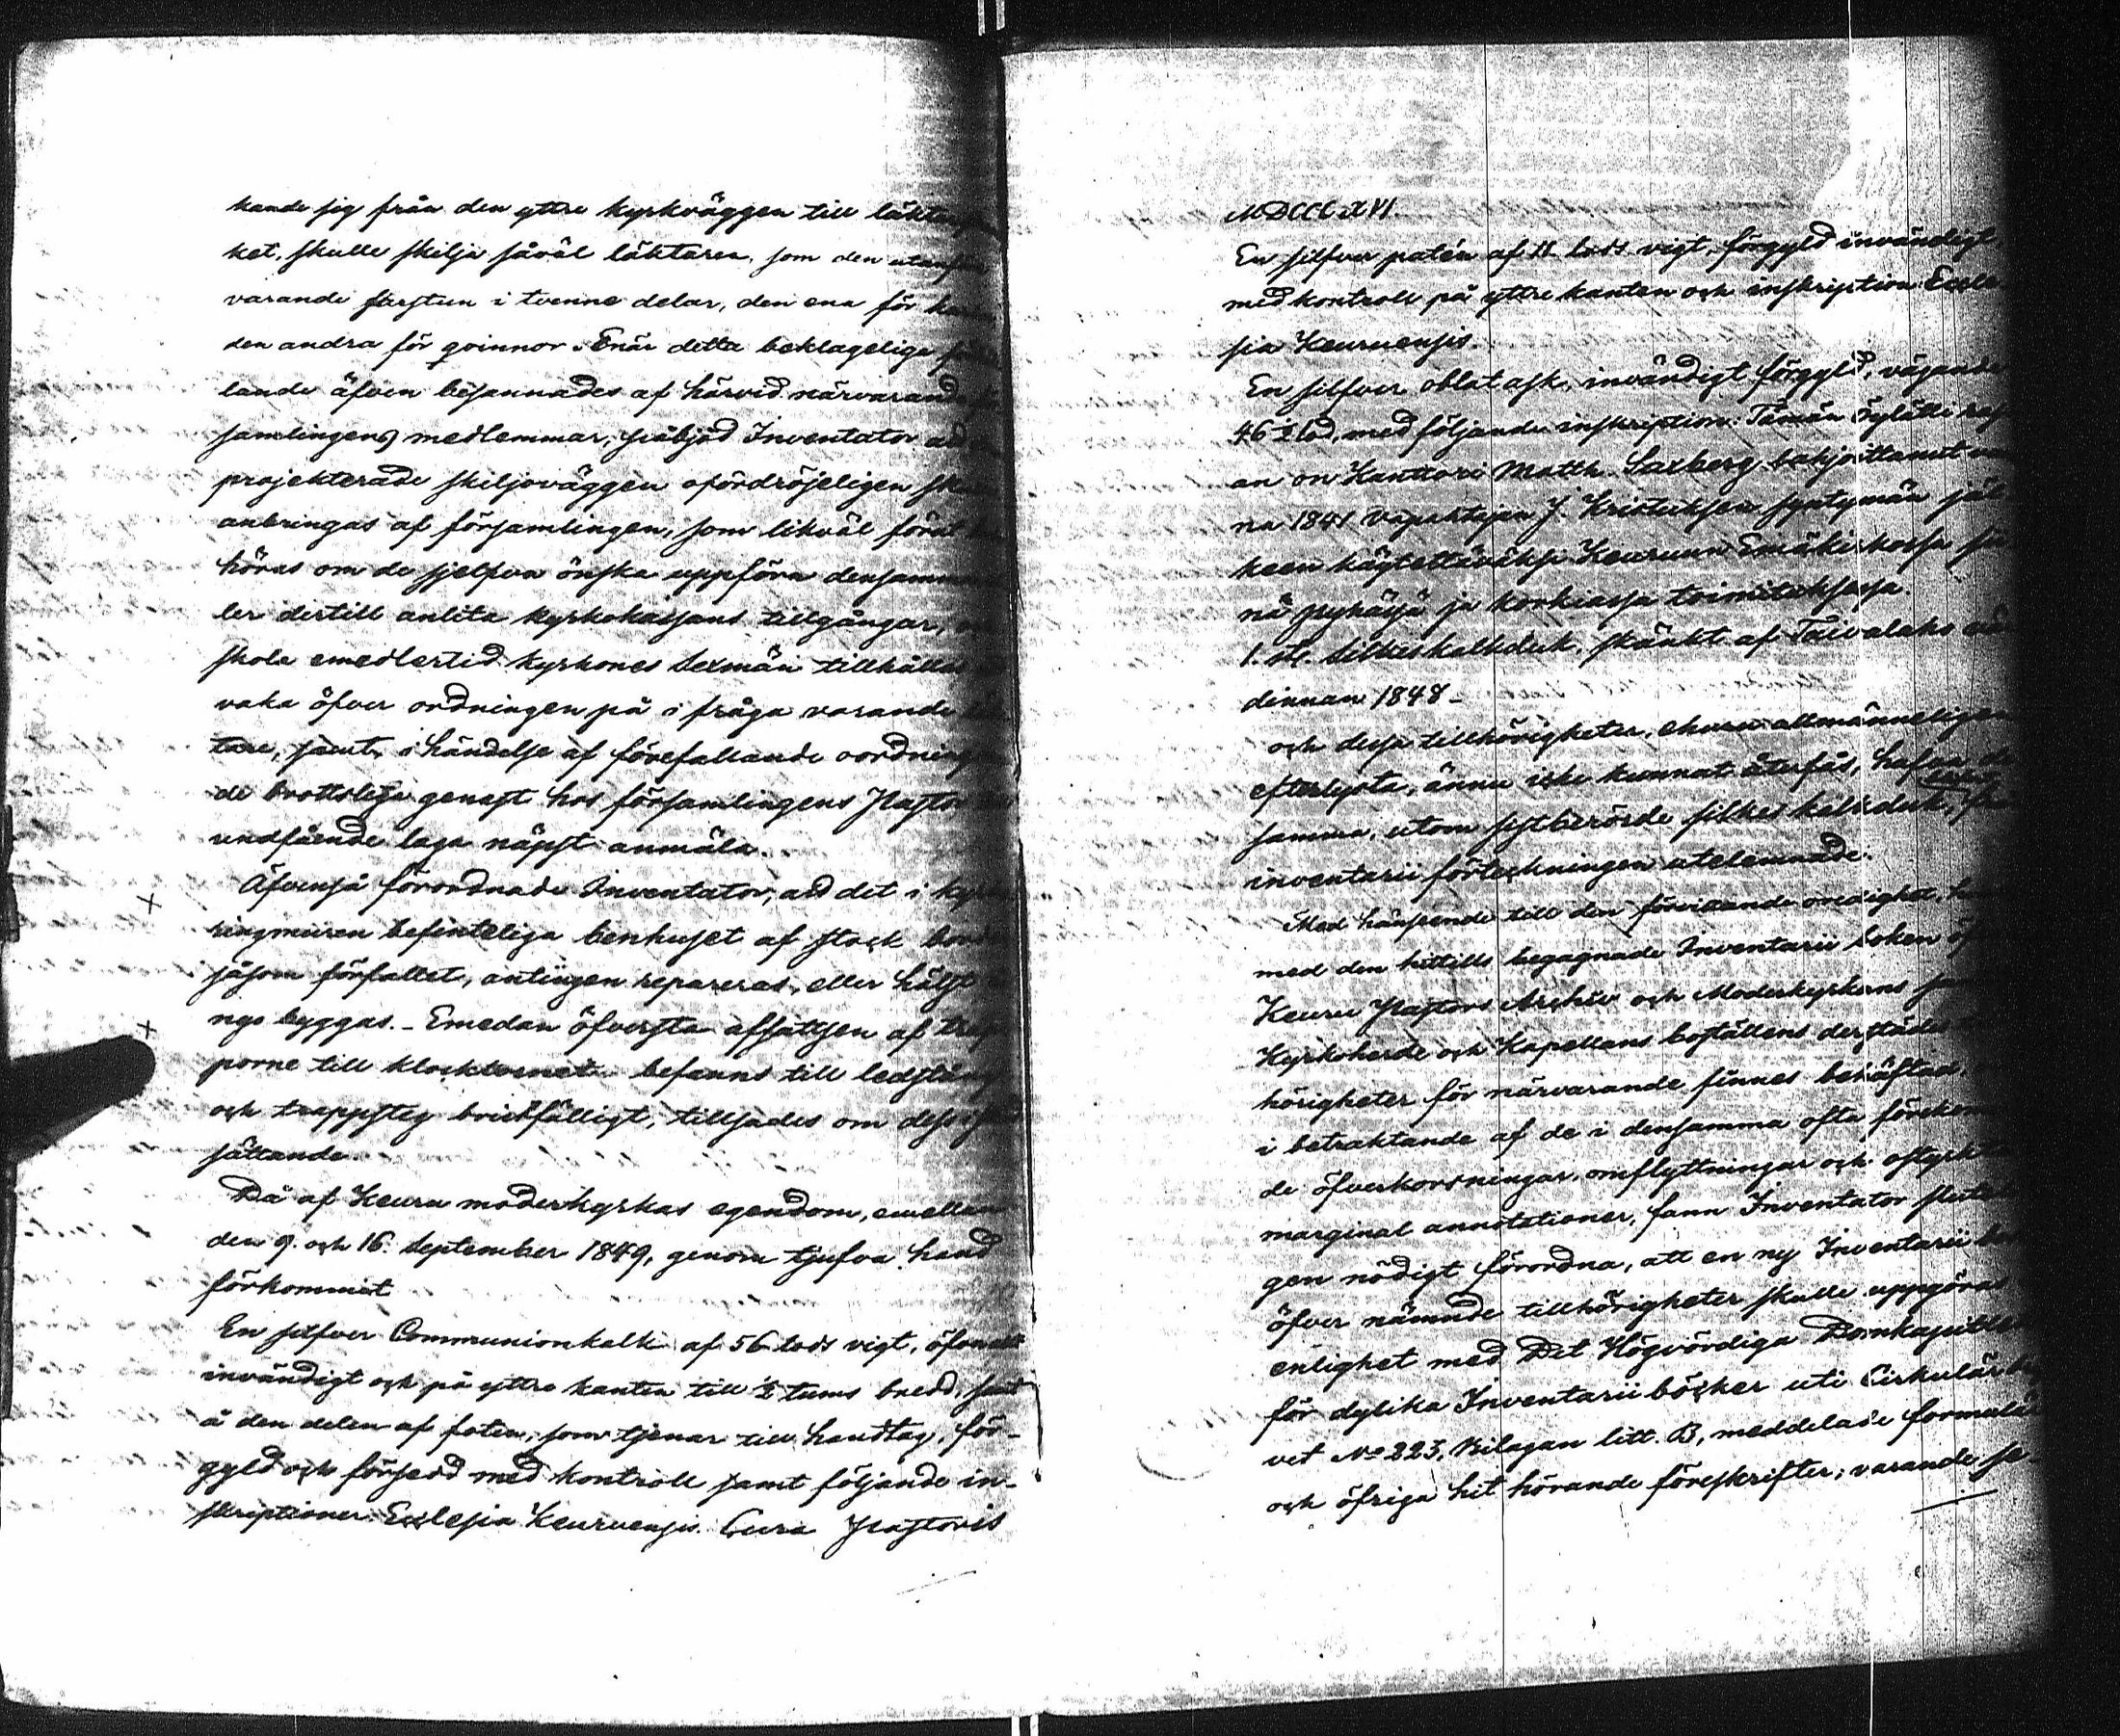 kande sig från den yttre kyrkväggen till
ket, skulle skilja såväl läktaren, som den utanför
varande farstun i tvenne delar, den ena för
den andra för qvinnor. Enär detta beklageliga
lande äfven besannades af härvid närvarande
samlingens medlemmar, påbjöd Inventator att
projekterade skiljoväggen ofördröjeligen
anbringas af församlingen, som likväl förut
höras om de sjelfva önska uppföra densamma
ler dertill anlita kyrkokassans tillgångar,
skola emedlertid kyrkones Sexmän tillhållas
vaka öfver ordningen på i fråga varande
tare, samt i händelse af förefallande oordningar
de brottslige genast hos församlingens Pastor
undfående laga näpst anmäla.
Äfvenså förordnade Inventator, att det i
ringmuren befintliga benhuset af stock
såsom förfallet, antingen repareras, eller hälst
nyo byggas. - Emedan öfversta afsattsen af
porne till klocktornet befanns till ledstång
och trappsteg bristfälligt, tillsades om dess
sättande.
Då af Keuru moderkyrkas egendom, emellan
den 9. och 16. September 1849, genom tjufva hand
förkommit
En silfver Communionkalk af 56 lods vigt,
invändigt och på yttre kanten till ½ tums bredd, samt
å den delen af foten, som tjenar till handtag, för-
gyld och försedd med kontroll samt följande in-
skriptioner: Ecclesia Keuruensis. Cura Pastoris
MDCCCXVI.
En silfver patén af 11 lods vigt, förgyld invändigt
med kontroll på yttre kanten och inskription: Eccle-
sia Keuruensis.
En silfver oblatask, invändigt förgyld, vägande
46 ½ lod, med följande inskription: Tämän
an on Kanttori Matth. Saxberg lahjoittanut
na 1841 Vapahtajan J. Kristuksen syntymän jäl-
keen käytettäväksi Keuruun Emäkirkossa
nä pyhässä ja korkiassa toimituksessa.
1. st. Silkeskalkduk, skänkt af Taivalaks
dinnan 1848 -
och dessa tillhörigheter, ehuru allmänneligen
efterlysta, ännu icke kunnat återfås, hafva
samma, utom sistberörde silkes kalkduk,
inventarii förteckningen utelemnade.
Med hänseende till den förvillande oredighet,
med den hittills begagnade Inventarii boken
Keuru Pastors Archiv och Moderkyrkans
Kyrkoherde och Kapellans boställens derstädes
hörigheter för närvarande finnes behäftad,
i betraktande af de i densamma ofta förekom
de öfverkorsningar, omflyttningar och
marginal annotationer, fann Inventator
gen nödigt förordna, att en ny Inventarii
öfver nämnde tillhörigheter skulle uppgöras
enlighet med Det Högvördiga Domkapitlet
för dylika Inventarii böcker uti Cirkulär
vet No 223, Bilagan litt. B, meddelade formulär
och öfriga hit hörande föreskrifter; varande